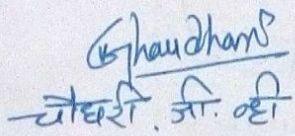 GVChaudhari
चौधरी. जी. व्ही